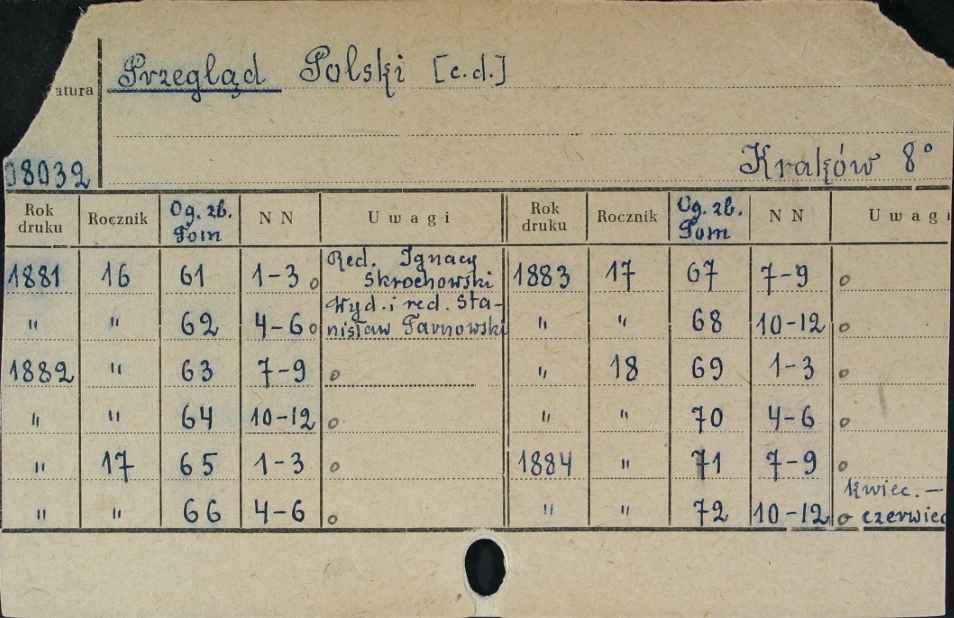 Przegląd Polski [c.d.]
atura
08032
Kraków 8°
Rok druku Rocznik Og. zb. Tom N N Uwagi Rok druku Rocznik Og. zb. Tom N N Uwagi
1881 16 61 1-3 o Red. Ignacy Skrochowski 1883 17 67 7-9 o
" " 62 4-6 o Wyd. i red. Stanisław Tarnowski " " 68 10-12 o
1882 " 63 7-9 o " 18 69 1-3 o
" " 64 10-12 o " " 70 4-6 o
" 17 65 1-3 o 1884 " 71 7-9 o
" " 66 4-6 o " " 72 10-12 o kwiec. – czerwiec